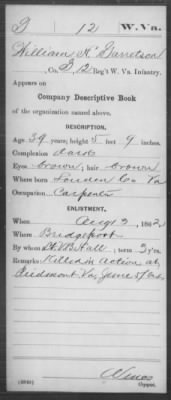 G 12 W. Va.
William H. Garretson
Co. B, 12 Reg't W. Va. Infantry.
Appears on
Company Descriptive Book
of the organization named above.
DESCRIPTION.
Age 39 years; height 5 feet 9 inches.
Complexion dark
Eyes brown; hair brown
Where born Co Va
Occupation Carpenter
ENLISTMENT.
When Aug 9, 1862.
Where Bridgeport
By whom Hall; term 3 y'rs.
Remarks: Killed in Action at
Piedmont Va, June 5/64
Copyist.